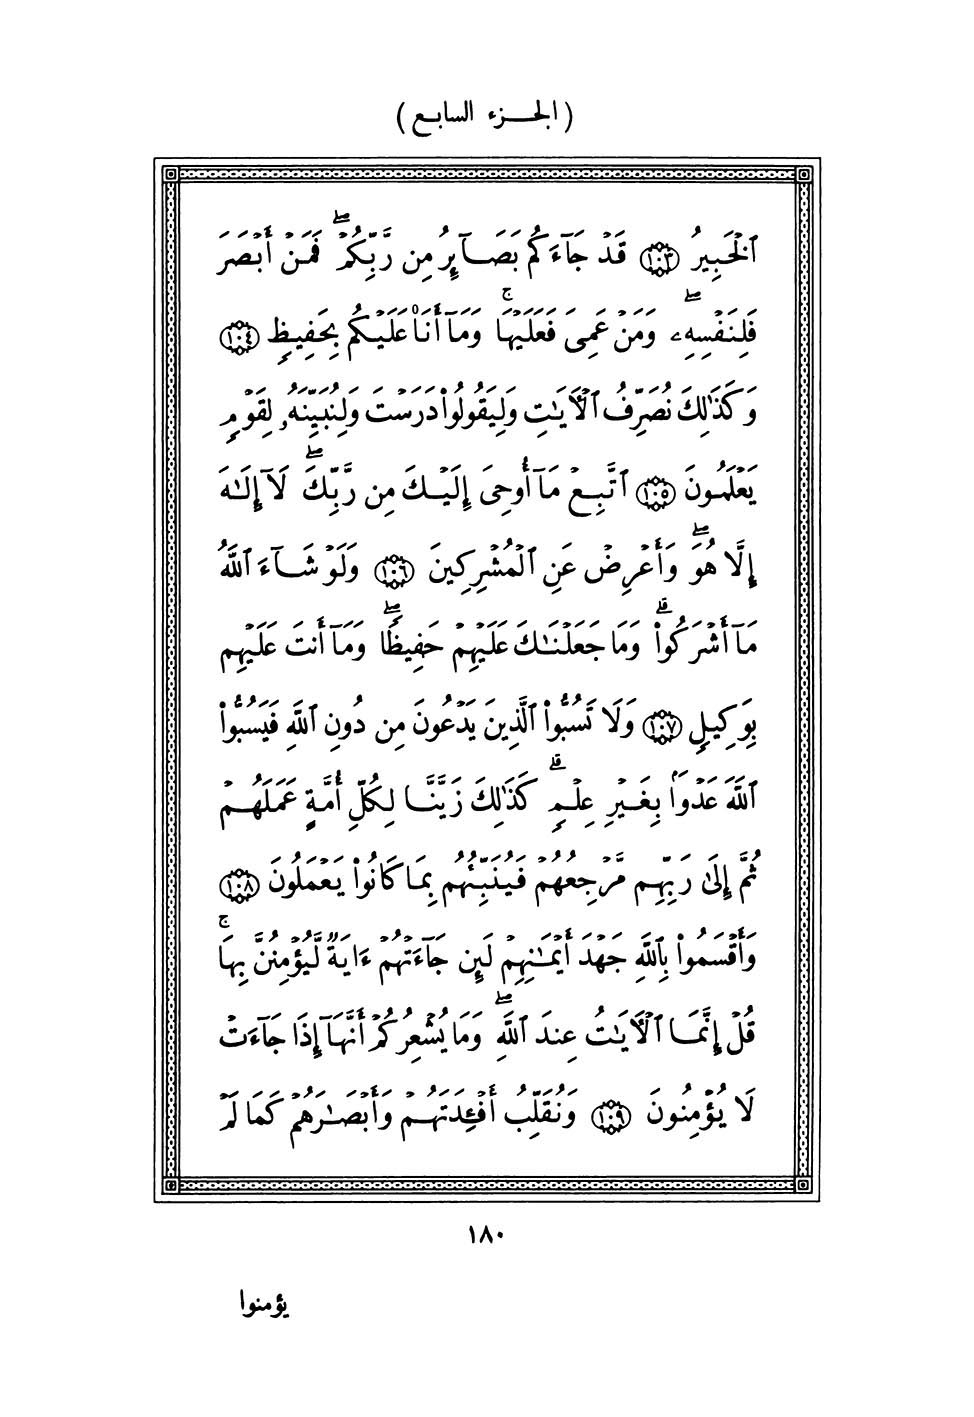 (الجـزء السابـع)
ٱلْخَبِيرُ ١٠٣ قَدْ جَآءَكُم بَصَآئِرُ مِن رَّبِّكُمْ ۖ فَمَنْ أَبْصَرَ
فَلِنَفْسِهِۦ ۖ وَمَنْ عَمِىَ فَعَلَيْهَا ۚ وَمَآ أَنَا۠ عَلَيْكُم بِحَفِيظٍ ١٠٤
وَكَذَٰلِكَ نُصَرِّفُ ٱلْـَٔايَٰتِ وَلِيَقُولُوا۟ دَرَسْتَ وَلِنُبَيِّنَهُۥ لِقَوْمٍ
يَعْلَمُونَ ١٠٥ ٱتَّبِعْ مَآ أُوحِىَ إِلَيْكَ مِن رَّبِّكَ ۖ لَآ إِلَٰهَ
إِلَّا هُوَ ۖ وَأَعْرِضْ عَنِ ٱلْمُشْرِكِينَ ١٠٦ وَلَوْ شَآءَ ٱللَّهُ
مَآ أَشْرَكُوا۟ ۗ وَمَا جَعَلْنَٰكَ عَلَيْهِمْ حَفِيظًا ۖ وَمَآ أَنتَ عَلَيْهِم
بِوَكِيلٍ ١٠٧ وَلَا تَسُبُّوا۟ ٱلَّذِينَ يَدْعُونَ مِن دُونِ ٱللَّهِ فَيَسُبُّوا۟
ٱللَّهَ عَدْوًۢا بِغَيْرِ عِلْمٍ ۗ كَذَٰلِكَ زَيَّنَّا لِكُلِّ أُمَّةٍ عَمَلَهُمْ
ثُمَّ إِلَىٰ رَبِّهِم مَّرْجِعُهُمْ فَيُنَبِّئُهُم بِمَا كَانُوا۟ يَعْمَلُونَ ١٠٨
وَأَقْسَمُوا۟ بِٱللَّهِ جَهْدَ أَيْمَٰنِهِمْ لَئِن جَآءَتْهُمْ ءَايَةٌ لَّيُؤْمِنُنَّ بِهَا ۚ
قُلْ إِنَّمَا ٱلْـَٔايَٰتُ عِندَ ٱللَّهِ ۖ وَمَا يُشْعِرُكُمْ أَنَّهَآ إِذَا جَآءَتْ
لَا يُؤْمِنُونَ ١٠٩ وَنُقَلِّبُ أَفْـِٔدَتَهُمْ وَأَبْصَٰرَهُمْ كَمَا لَمْ
١٨٠
يؤمنوا